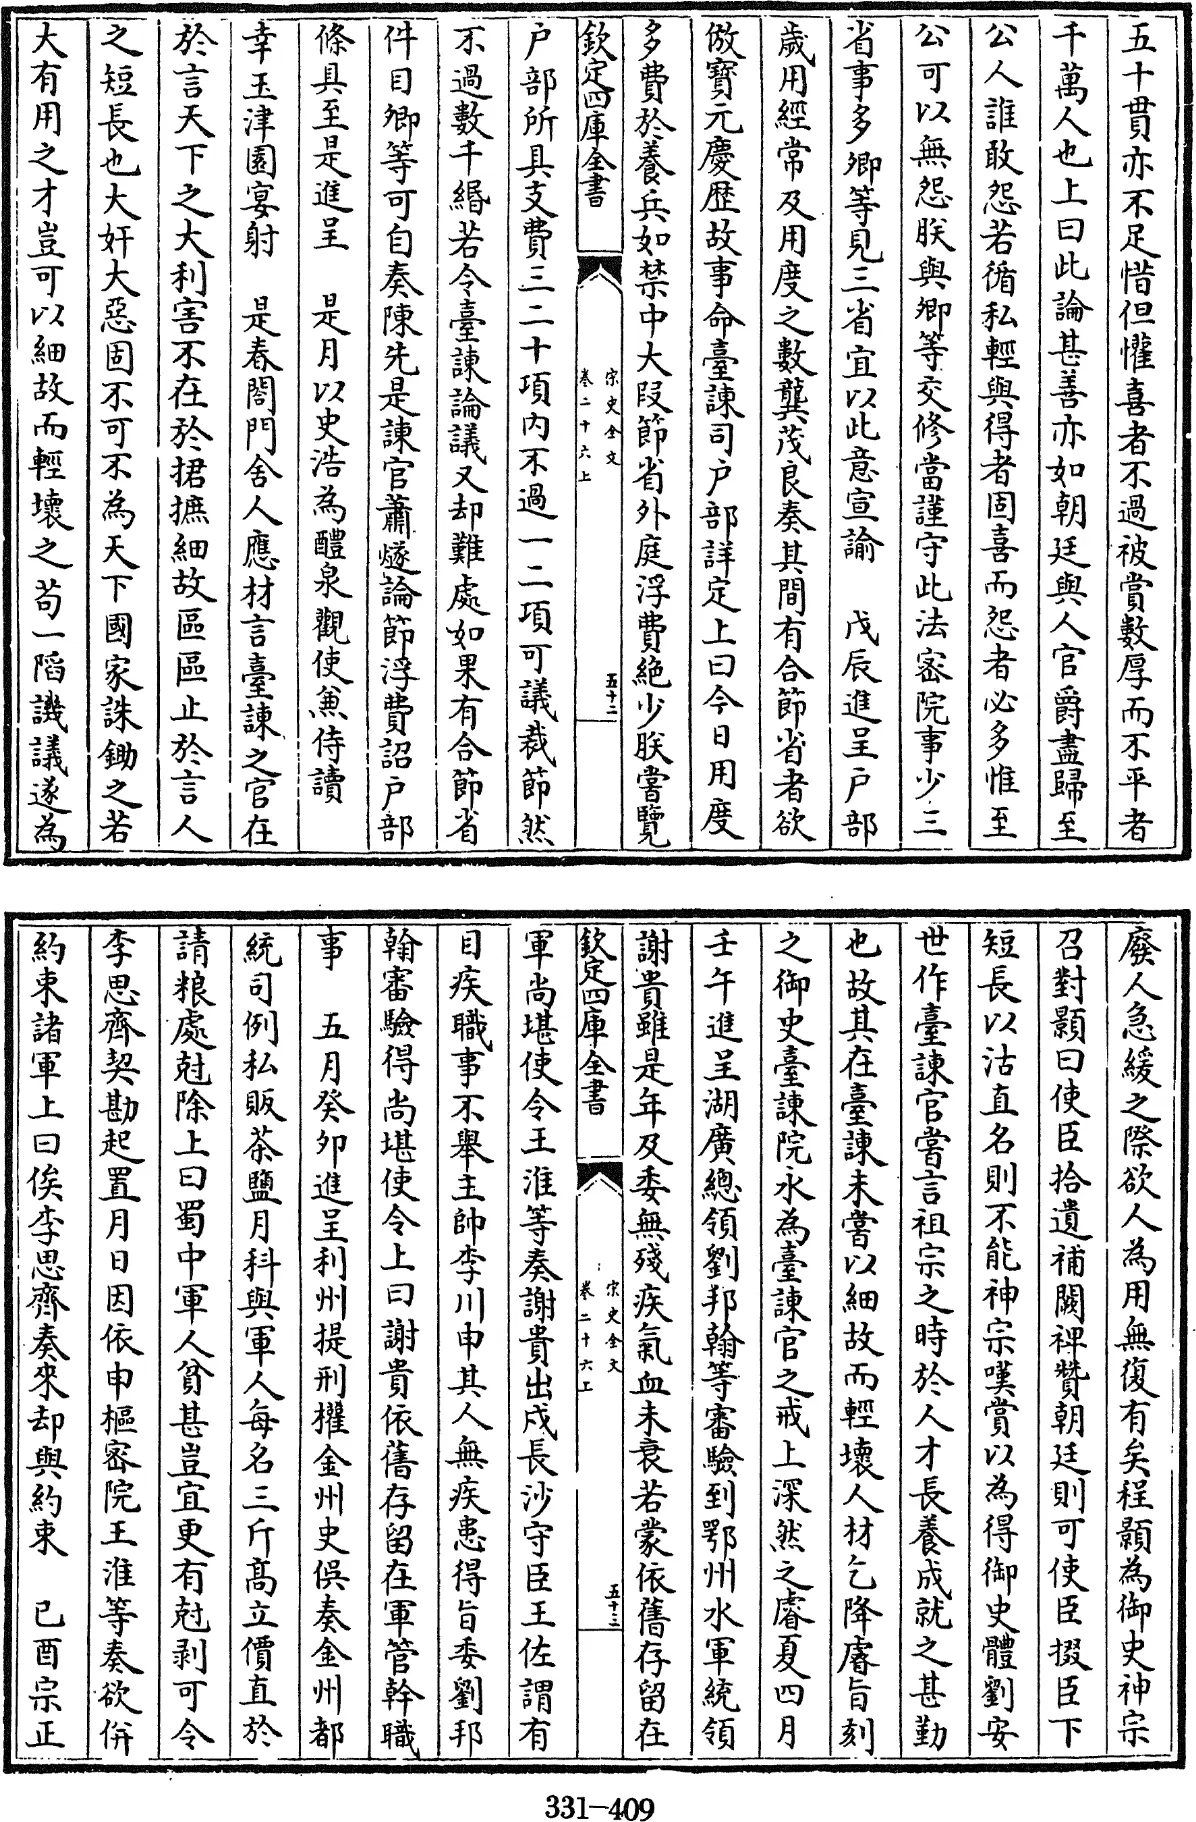 五十貫亦不足惜但懼喜者不過被賞數厚而不平者
千萬人也上曰此論甚善亦如朝廷與人官爵盡歸至
公人誰敢怨若循私輕與得者固喜而怨者必多惟至
公可以無怨朕與卿等交修當謹守此法密院事少三
省事多卿等見三省宜以此意宣諭　戊辰進呈户部
歲用經常及用度之數龔茂良奏其間有合節省者欲
倣寶元慶歴故事命臺諫司户部詳定上曰今日用度
多費於養兵如禁中大段節省外庭浮費絶少朕嘗覽
欽定四庫全書
宋史全文
卷二十六上
五十二
户部所具支費三二十項内不過一二項可議裁節然
不過數千緡若令臺諫論議又却難處如果有合節省
件目卿等可自奏陳先是諫官蕭燧論節浮費詔户部
條具至是進呈　是月以史浩為醴泉觀使兼侍讀
幸玉津園宴射　是春閤門舍人應材言臺諫之官在
於言天下之大利害不在於捃摭細故區區止於言人
之短長也大奸大惡固不可不為天下國家誅鋤之若
大有用之才豈可以細故而輕壞之茍一䧟譏議遂為
廢人急緩之際欲人為用無復有矣程顥為御史神宗
召對顥曰使臣拾遺補闕裨贊朝廷則可使臣掇臣下
短長以沽直名則不能神宗嘆賞以為得御史體劉安
世作臺諫官嘗言祖宗之時於人才長養成就之甚勤
也故其在臺諫未嘗以細故而輕壞人材乞降睿旨刻
之御史臺諫院永為臺諫官之戒上深然之睿夏四月
壬午進呈湖廣總領劉邦翰等審驗到鄂州水軍統領
謝貴雖是年及委無殘疾氣血未衰若蒙依舊存留在
欽定四庫全書
宋史全文
卷二十六上
五十三
軍尚堪使令王淮等奏謝貴出戍長沙守臣王佐謂有
目疾職事不舉主帥李川申其人無疾患得旨委劉邦
翰審驗得尚堪使令上曰謝貴依舊存留在軍管幹職
事　五月癸卯進呈利州提刑權金州史俁奏金州都
統司例私販茶鹽月科與軍人每名三斤高立價直於
請粮處尅除上曰蜀中軍人貧甚豈宜更有尅剥可令
李思齊契勘起置月日因依申樞密院王淮等奏欲併
約束諸軍上曰俟李思齊奏來却與約束　已酉宗正
331-409